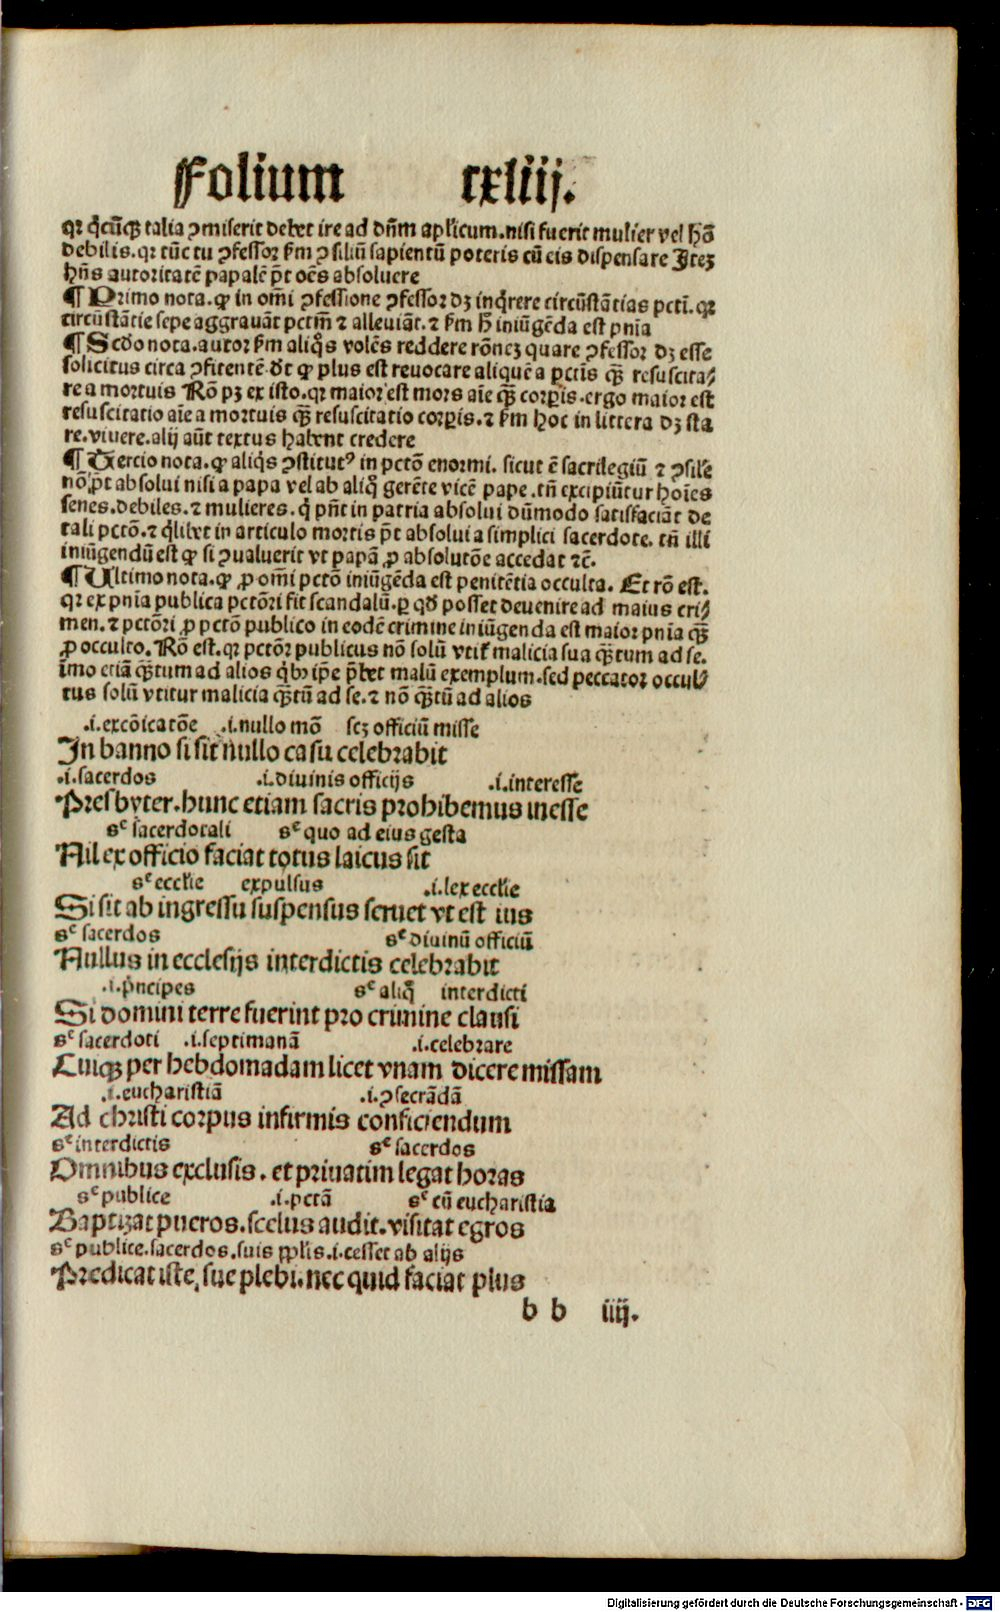 Folium cxliij.
qꝛ q̇cūqꝫ talia ꝯmiserit debet ire ad dn̄m apl̓icum.nisi fuerit mulier vel hō
debilis.qꝛ tūc tu ꝯfessoꝛ km̄ ꝯsiliū sapientū poteris cū eis dispensare Itēꝫ
hn̄s autoritatē papalē pn̄t oēs absoluere
¶ Primo nota.ꝙ in om̄i ꝯfessione ꝯfessoꝛ dꝫ inq̇rere circūstātias pcti.qꝛ
circūstātie sepe aggrauāt pctm̄ ⁊ alleuiāt.⁊ km̄ h̄ iniūgēda est pn̄ia
¶ Scd̓o nota.autoꝛ km̄ aliq̊s volēs reddere rōneꝫ quare ꝯfessoꝛ dꝫ esse
solicitus circa ꝯfitentē.d̓t ꝙ plus est reuocare aliquē a pctīs qꝫ̄ resuscita⸗
re a mortuis Rō pꝫ ex isto.qꝛ maioꝛ est moꝛs aīe qꝫ̄ coꝛꝑis.ergo maioꝛ est
resuscitatio aīe a mortuis qꝫ̄ resuscitatio coꝛꝑis.⁊ km̄ hoc in littera dꝫ sta
re.viuere.alij aūt textus habent credere
¶ Tercio nota.ꝙ aliq̇s ꝯstitutꝰ in pctō enormi. sicut ē sacrilegiū ⁊ ꝯsil̓e
nō p̄t absolui nisi a papa vel ab aliq̊ gerēte vicē pape.tn̄ excipiūtur hoīes
senes.debiles.⁊ mulieres.q̇ pn̄t in patria absolui dūmodo satisfaciāt de
tali pctō.⁊ q̇libet in articulo mortis p̄t absolui a simplici sacerdote. tn̄ illi
iniūgendū est ꝙ si ꝯualuerit vt papā ꝓ absolutōe accedat ⁊c̄.
¶ Ultimo nota.ꝙ ꝓ om̄i pctō iniūgēda est penitētia occulta. Et rō est.
qꝛ ex pn̄ia publica pctōri fit scandalū.ꝑ qd̓ posset deuenire ad maius cri⸗
men.⁊ pctōri ꝓ pctō publico in eodē crimine iniūgenda est maioꝛ pn̄ia qꝫ̄
ꝓ occulto. Rō est.qꝛ pctōꝛ publicus nō solū vtit̓ malicia sua qꝫ̄tum ad se.
īmo etiā qꝫ̄tum ad alios q̇bꝫ ip̄e p̄bet malū exemplum.sed peccatoꝛ occul⸗
tus solū vtitur malicia qꝫ̄tū ad se.⁊ nō qꝫ̄tū ad alios
.i.excōicatōe .i.nullo mō scꝫ officiū misse
In banno si sit nullo casu celebrabit
.i.sacerdos .i.diuinis officijs .i.interesse
Presbyter.hunc etiam sacris prohibemus inesse
sᶜ sacerdotali sᶜ quo ad eius gesta
Nil ex officio faciat totus laicus sit
sᶜ eccl̓ie expulsus .i.lex eccl̓ie
Si sit ab ingressu suspensus seruet vt est ius
sᶜ sacerdos sᶜ diuinū officiū
Nullus in ecclesijs interdictis celebrabit
.i.pn̄cipes sᶜ aliq̊ interdicti
Si domini terre fuerint pro crimine clausi
sᶜ sacerdoti .i.septimanā .i.celebrare
Cuiqꝫ per hebdomadam licet vnam dicere missam
.i.eucharistiā .i.ꝯsecrādā
Ad christi coꝛpus infirmis conficiendum
sᶜ interdictis sᶜ sacerdos
Omnibus exclusis. et priuatim legat horas
sᶜ publice .i.pctā sᶜ cū eucharistia
Baptizat pueros.scelus audit.visitat egros
sᶜ publice.sacerdos.suis ꝓpl̓is.i.cesset ab alijs
Predicat iste sue plebi.nec quid faciat plus
b b iiij.
Digitalisierung gefördert durch die Deutsche Forschungsgemeinschaft - DFG